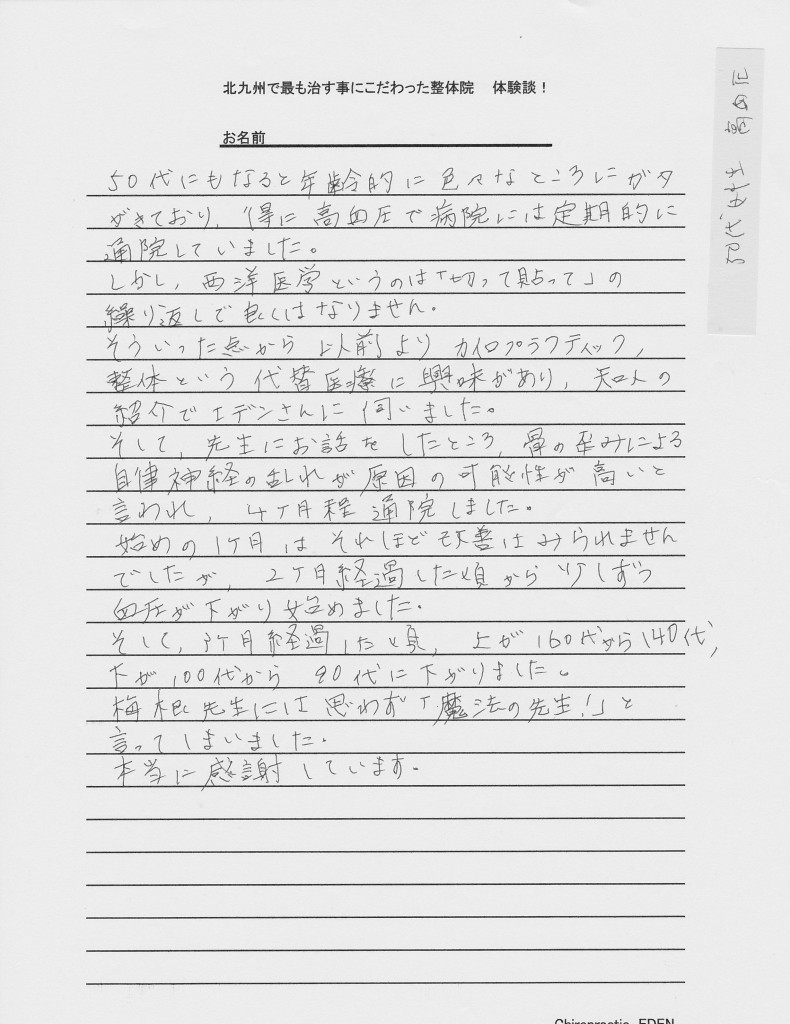 北九州で最も治す事にこだわった整体院 体験談！
お名前
50代にもなると年齢的に色々なところにガタ
がきており、特に高血圧で病院には定期的に
通院していました。
しかし、西洋医学というのは「切って貼って」の
繰り返しで良くはなりません。
そういった点から以前よりカイロプラクティック、
整体という代替医療に興味があり、知人の
紹介でエデンさんに伺いました。
そして、先生にお話をしたところ、骨の歪みによる
自律神経の乱れが原因の可能性が高いと
言われ、4ヶ月程通院しました。
始めの1ヶ月はそれほど改善はみられません
でしたが、2ヶ月経過した頃から少しずつ
血圧が下がり始めました。
そして、3ヶ月経過した頃、上が160代から140代、
下が100代から90代に下がりました。
梅根先生には思わず「魔法の先生！」と
言ってしまいました。
本当に感謝しています。
50代 女性 高血圧
Chiropractic EDEN